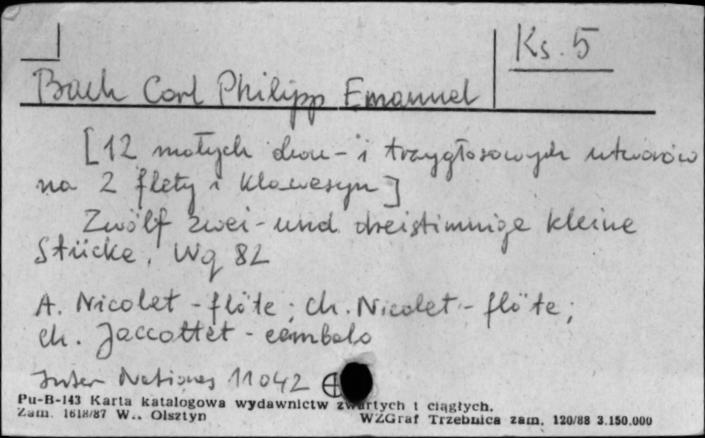 Ks. 5
Bach Carl Philipp Emanuel
[12 małych dwu- i trzygłosowych utworów
na 2 flety i klawesyn]
Zwölf zwei- und dreistimmige kleine
Stücke, Wq 82
A. Nicolet - flöte; Ch. Nicolet - flöte;
Ch. Jaccottet - cembalo
Inter Nationes 11042
Pu-B-143 Karta katalogowa wydawnictw zwartych i ciągłych.
Zam. 1618/87 W.. Olsztyn WZGraf Trzebnica zam. 120/88 3.150.000